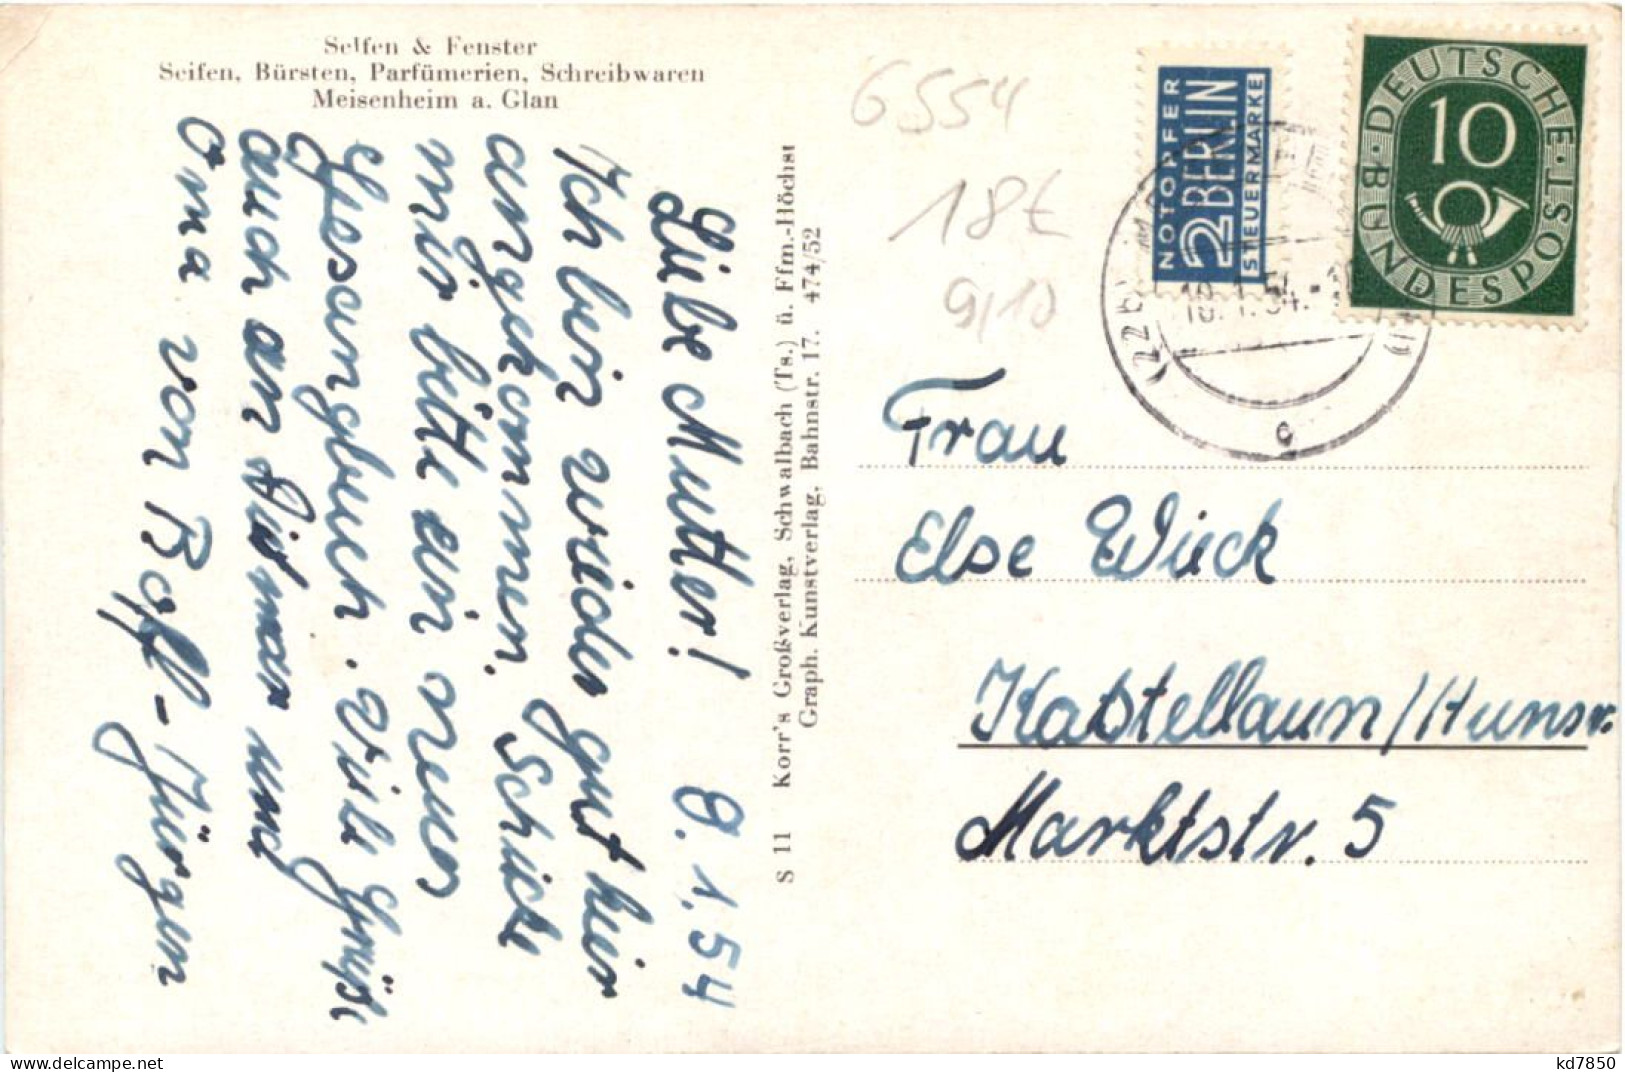 Seifen & Fenster
Seifen, Bürsten, Parfümerien, Schreibwaren
Meisenheim a. Glan
8.1.54
Liebe Mutter!
Ich bin wieder gut hier
angekommen. Schicke
mir bitte ein neues
Gesangbuch. Viele Grüße
auch an Ditmar und
Oma von
Jürgen
S 11 Korr's Großverlag, Schwalbach (Ts.) ü. Ffm.-Höchst
Graph. Kunstverlag, Bahnstr. 17. 474/52
6554
18€
9/10
NOTOPFER
2 BERLIN
STEUERMARKE
DEUTSCHE BUNDESPOST
10
(22b)
c
Frau
Else Wick
Kastellaun/Hunsr.
Marktstr. 5
kd7850